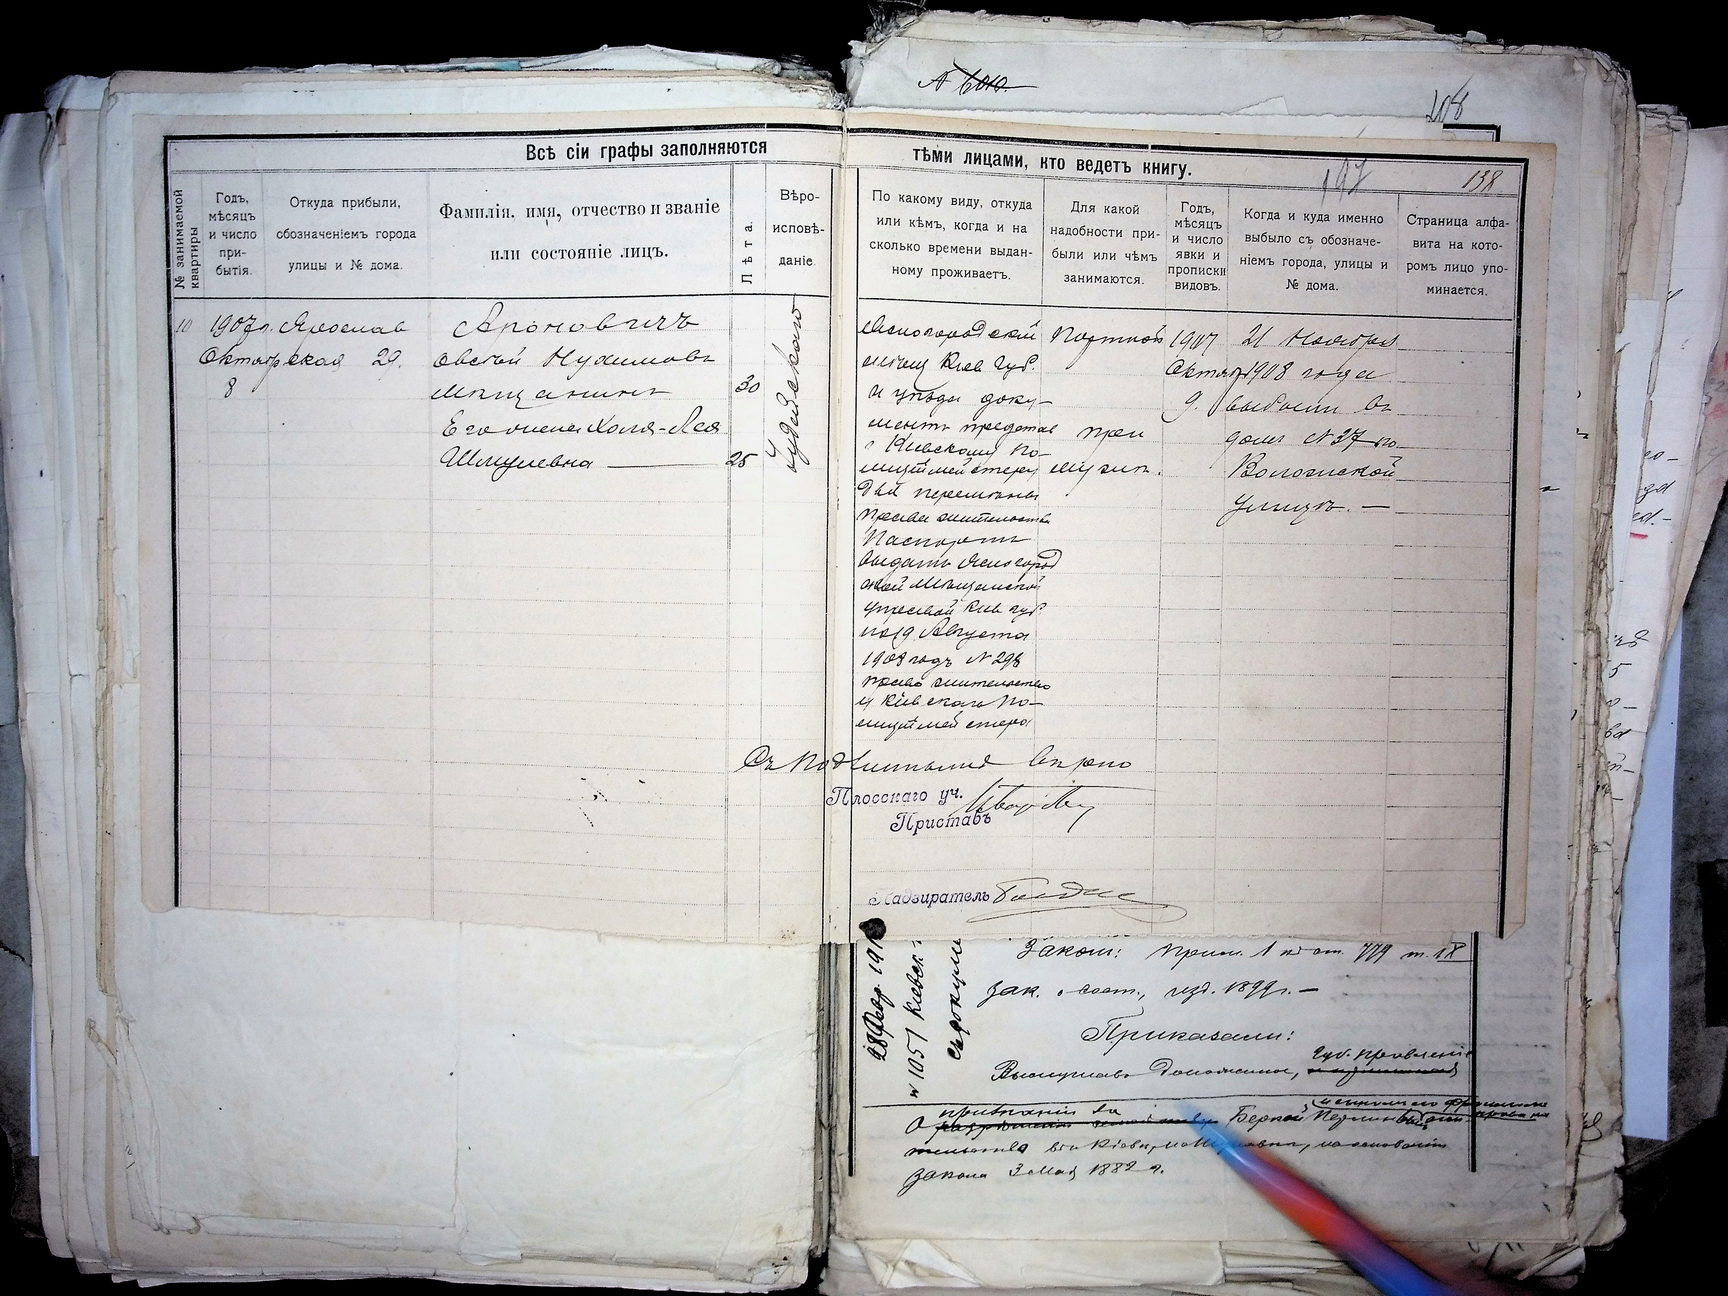 № 6010
208
Всѣ сіи графы заполняются
тѣми лицами, кто ведетъ книгу.
197
138
№ занимаемой квартиры
Годъ, мѣсяцъ и число прибытія.
Откуда прибыли, обозначеніемъ города улицы и № дома.
Фамилія, имя, отчество и званіе или состояніе лицъ.
Лѣта.
Вѣроисповѣданіе
По какому виду, откуда или кѣмъ, когда и на сколько времени выданному проживаетъ.
Для какой надобности прибыли или чѣмъ занимаются.
Годъ, мѣсяцъ и число явки и прописки видовъ.
Когда и куда именно выбыло съ обозначеніемъ города, улицы и № дома.
Страница алфавита на которомъ лицо упоминается.
10
1907 г.
Октября
8
Ярослав
ская 29.
Ароновичъ
Овсей Нухимовъ
мѣщанинъ
30
Его жена Хая-Лея
Шмулевна
25
Іудейского
Ясногородскій
мѣщ Кіев Губ.
и уѣзда доку-
ментъ представ
Кіевскому По-
лицiймейстеру
для перемѣны
права жительства
Паспортъ
выданъ Ясногород
ской Мѣщанской
управой Кіев губ
по 19 Августа
1908 годъ № 298
право жительства
Кіевскаго По-
лицiймейстера
Портной
при
мужѣ.
1907
Октяб
9.
21 Ноября
1908 года
выбыли въ
домъ № 37 по
Волошской
улицѣ. —
Съ подлиннымъ вѣрно
Плосскаго уч.
Приставъ
Надзиратель
28 Февр. 191
№ 1051 Кіевск
Законъ: прим. 1 къ ст. 779 т. IX
Зак. о сост., изд. 1899 г. —
Приказали:
Выслушавъ доложенное, Губ. Правленіе
О признаніи за
въ г. Кіевѣ, на основаніи
закона 3 Мая 1882 г.